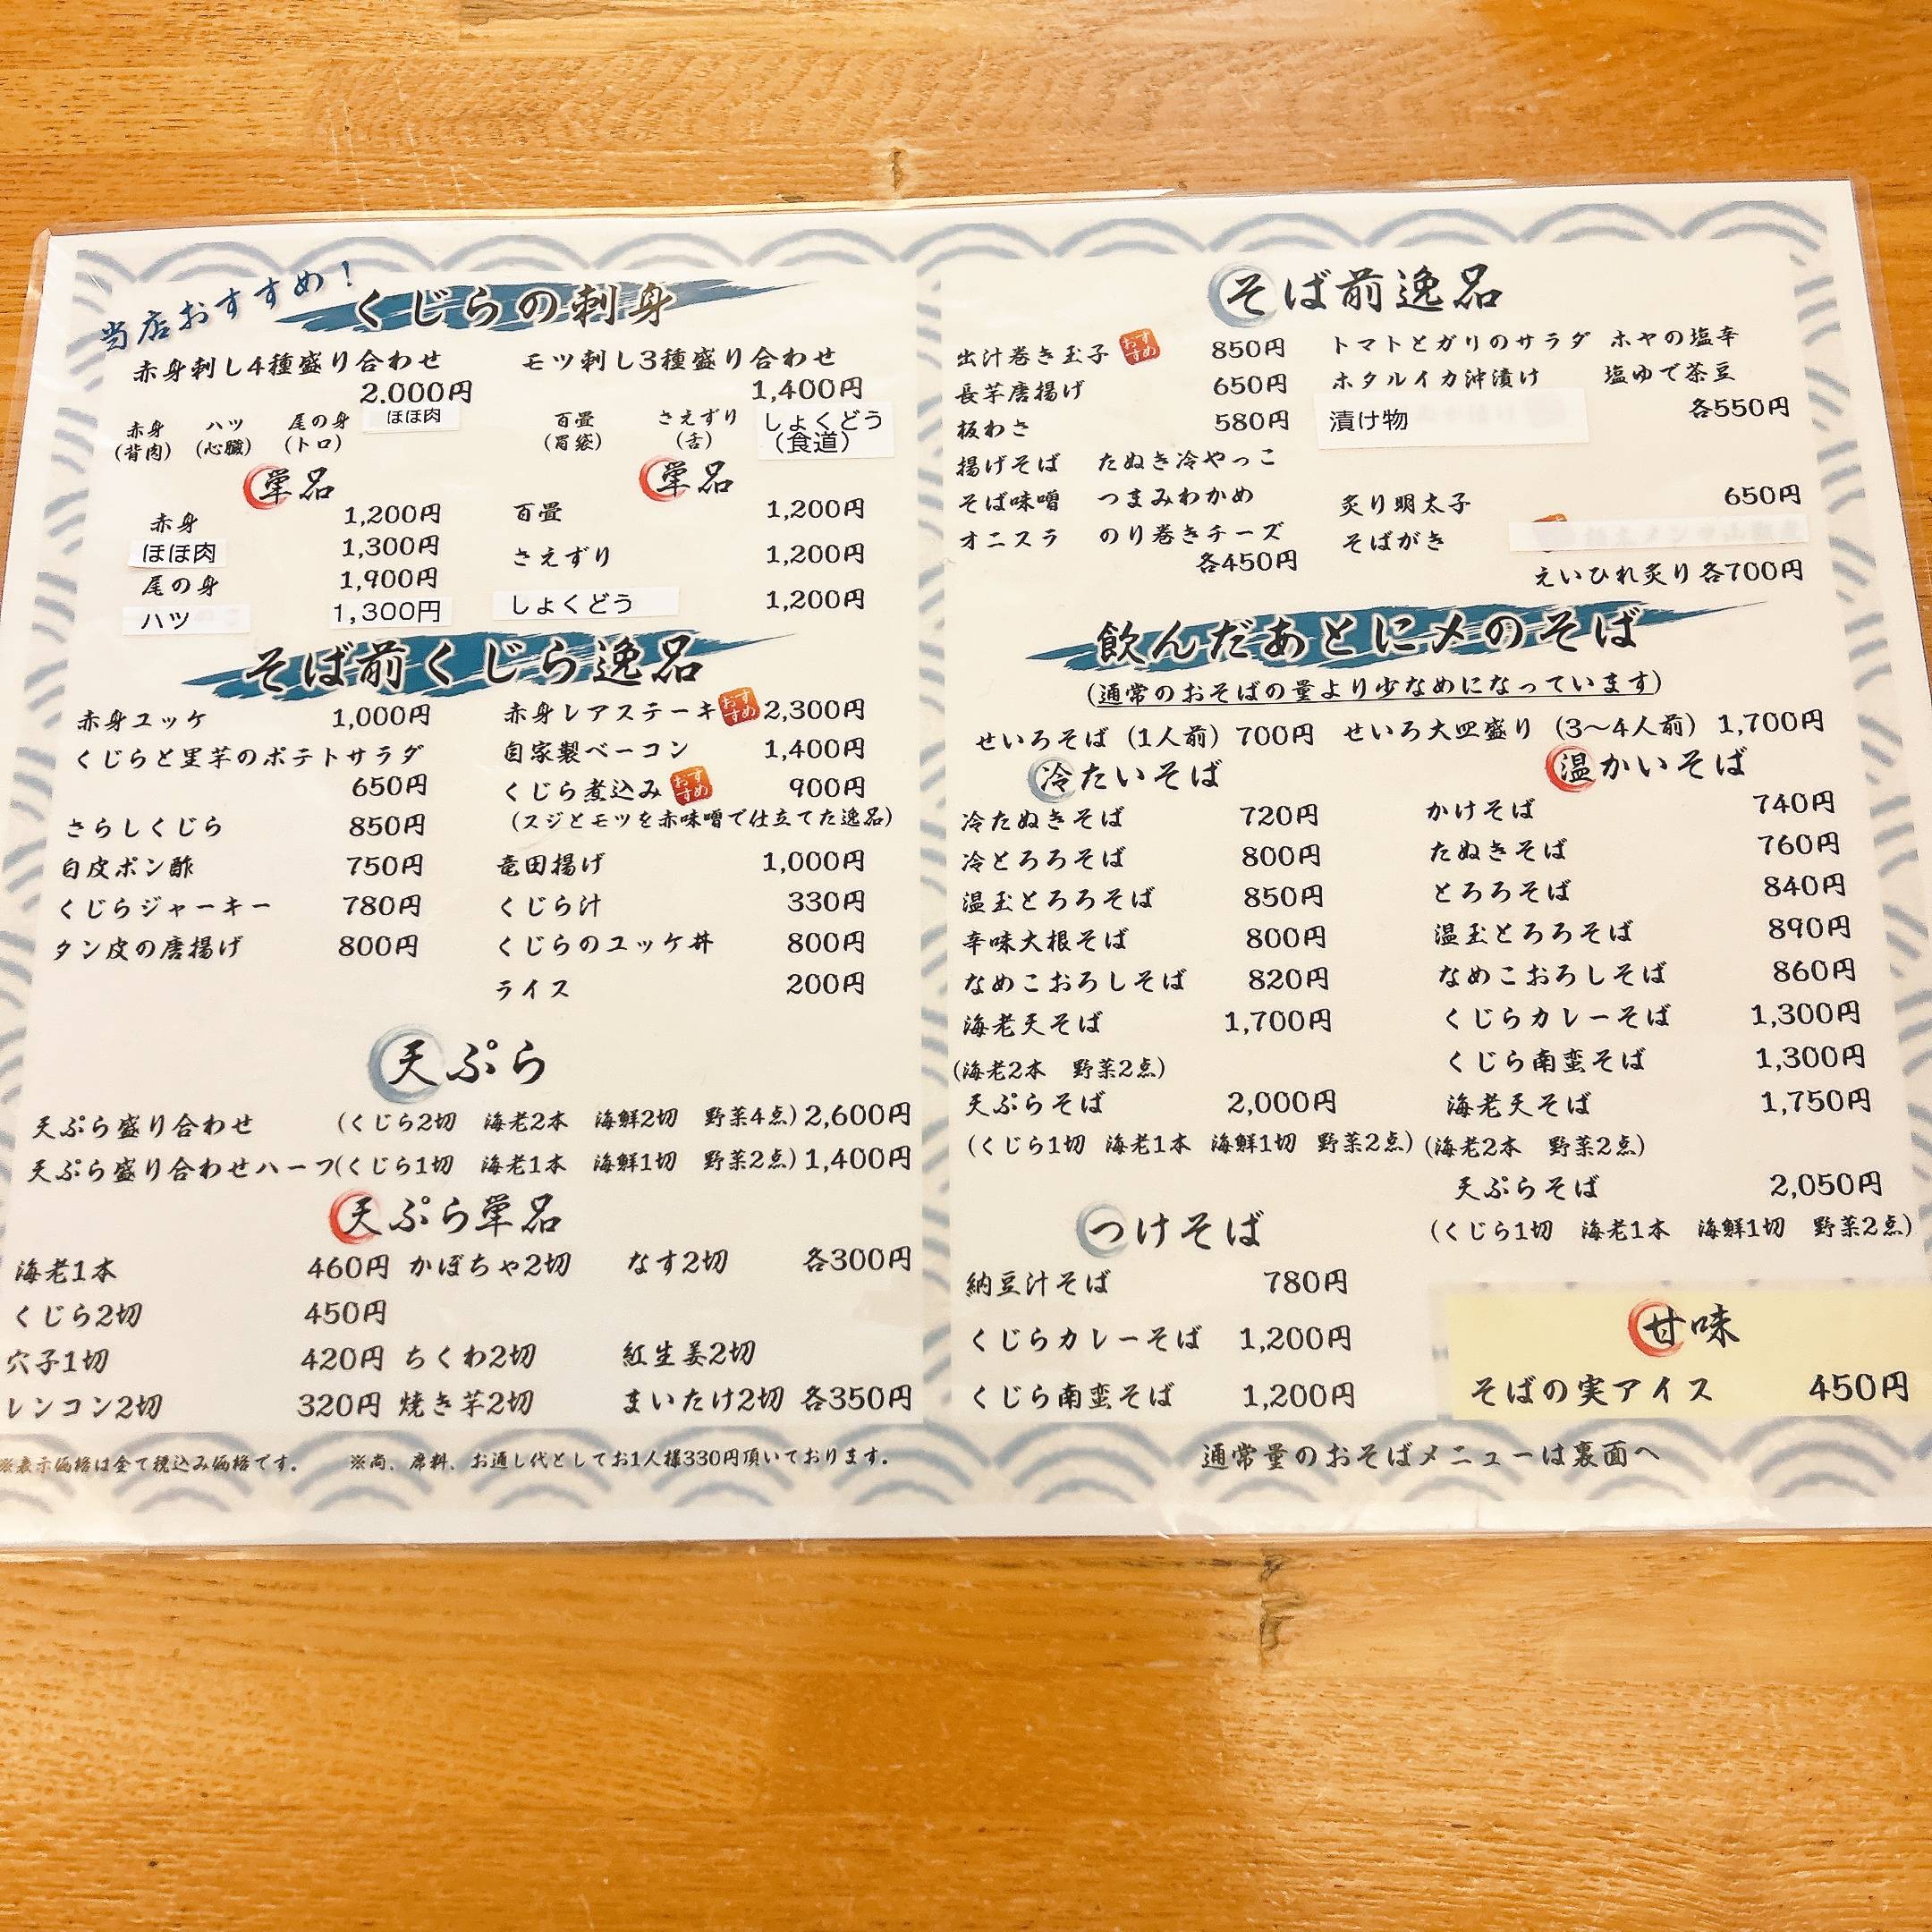 当店おすすめ！
くじらの刺身
赤身刺し4種盛り合わせ 2.000円
赤身（背肉） ハツ（心臓） 尾の身（トロ） ほほ肉
モツ刺し3種盛り合わせ 1,400円
百畳（胃袋） さえずり（舌） しょくどう（食道）
単品
赤身 1,200円
ほほ肉 1,300円
尾の身 1,900円
ハツ 1,300円
単品
百畳 1,200円
さえずり 1,200円
しょくどう 1,200円
そば前くじら逸品
赤身ユッケ 1,000円
くじらと里芋のポテトサラダ
650円
さらしくじら 850円
白皮ポン酢 750円
くじらジャーキー 780円
タン皮の唐揚げ 800円
赤身レアステーキ おすすめ 2,300円
自家製ベーコン 1,400円
くじら煮込み おすすめ 900円
（スジとモツを赤味噌で仕立てた逸品）
竜田揚げ 1,000円
くじら汁 330円
くじらのユッケ丼 800円
ライス 200円
天ぷら
天ぷら盛り合わせ （くじら2切 海老2本 海鮮2切 野菜4点）2,600円
天ぷら盛り合わせハーフ（くじら1切 海老1本 海鮮1切 野菜2点）1,400円
天ぷら単品
海老1本 460円 かぼちゃ2切 なす2切 各300円
くじら2切 450円
穴子1切 420円 ちくわ2切 紅生姜2切
レンコン2切 320円 焼き芋2切 まいたけ2切 各350円
※表示価格は全て税込み価格です。 ※尚、席料、お通し代としてお1人様330円頂いております。
そば前逸品
出汁巻き玉子 おすすめ 850円
長芋唐揚げ 650円
板わさ 580円
揚げそば たぬき冷やっこ
そば味噌 つまみわかめ
オニスラ のり巻きチーズ
各450円
トマトとガリのサラダ ホヤの塩辛
ホタルイカ沖漬け 塩ゆで茶豆
漬け物 各550円
炙り明太子 650円
そばがき
えいひれ炙り 各700円
飲んだあとに〆のそば
（通常のおそばの量より少なめになっています）
せいろそば（1人前）700円 せいろ大皿盛り（3〜4人前）1,700円
冷たいそば
冷たぬきそば 720円
冷とろろそば 800円
温玉とろろそば 850円
辛味大根そば 800円
なめこおろしそば 820円
海老天そば 1,700円
（海老2本 野菜2点）
天ぷらそば 2,000円
（くじら1切 海老1本 海鮮1切 野菜2点）
温かいそば
かけそば 740円
たぬきそば 760円
とろろそば 840円
温玉とろろそば 890円
なめこおろしそば 860円
くじらカレーそば 1,300円
くじら南蛮そば 1,300円
海老天そば 1,750円
（海老2本 野菜2点）
天ぷらそば 2,050円
（くじら1切 海老1本 海鮮1切 野菜2点）
つけそば
納豆汁そば 780円
くじらカレーそば 1,200円
くじら南蛮そば 1,200円
甘味
そばの実アイス 450円
通常量のおそばメニューは裏面へ